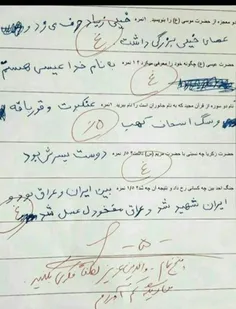 دو معجزه از حضرت موسی (ع) را بنویسید. ۱نمره خیلی زیاد حرف می زد و
عصای خیلی بزرگی داشت غ
حضرت عیسی (ع) چگونه خود را معرفی میکرد؟ ۱ نمره به نام خدا عیسی هستم
غ
نام دو سوره از قرآن مجید که به نام جانوران است را نام ببرید. ۱نمره عنکبوت و قورباغه
و سگ اصحاب کهف ۰/۵
حضرت زکریا چه نسبتی با حضرت مریم (س) داشت؟ ۱ نمره دوست پسرش بود
غ
جنگ احد بین چه کسانی رخ داد و نتیجه آن چه شد؟ ۱ نمره بین ایران و عراق بود و
ایران شهید شد و عراق مفقود ل عمل شد غ